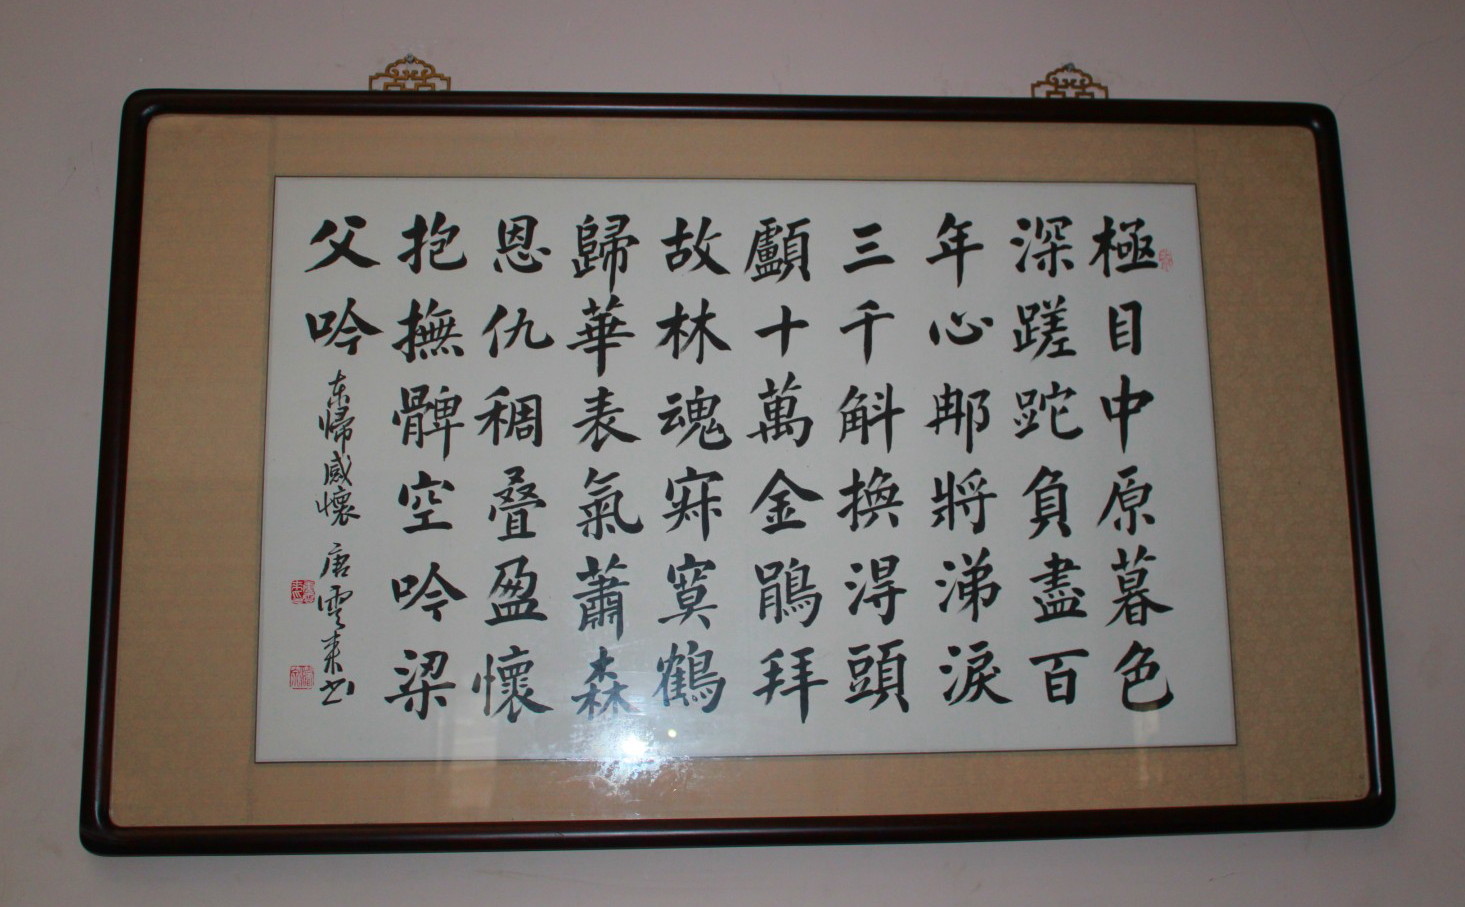 極目中原暮色
深蹉跎負盡百
年心那將涕淚
三千斛換得頭
顱十萬金鵑拜
故林魂寂寞鶴
歸華表氣蕭森
恩仇稠叠盈懷
抱撫髀空吟梁
父吟
東歸感懷 唐雲来书